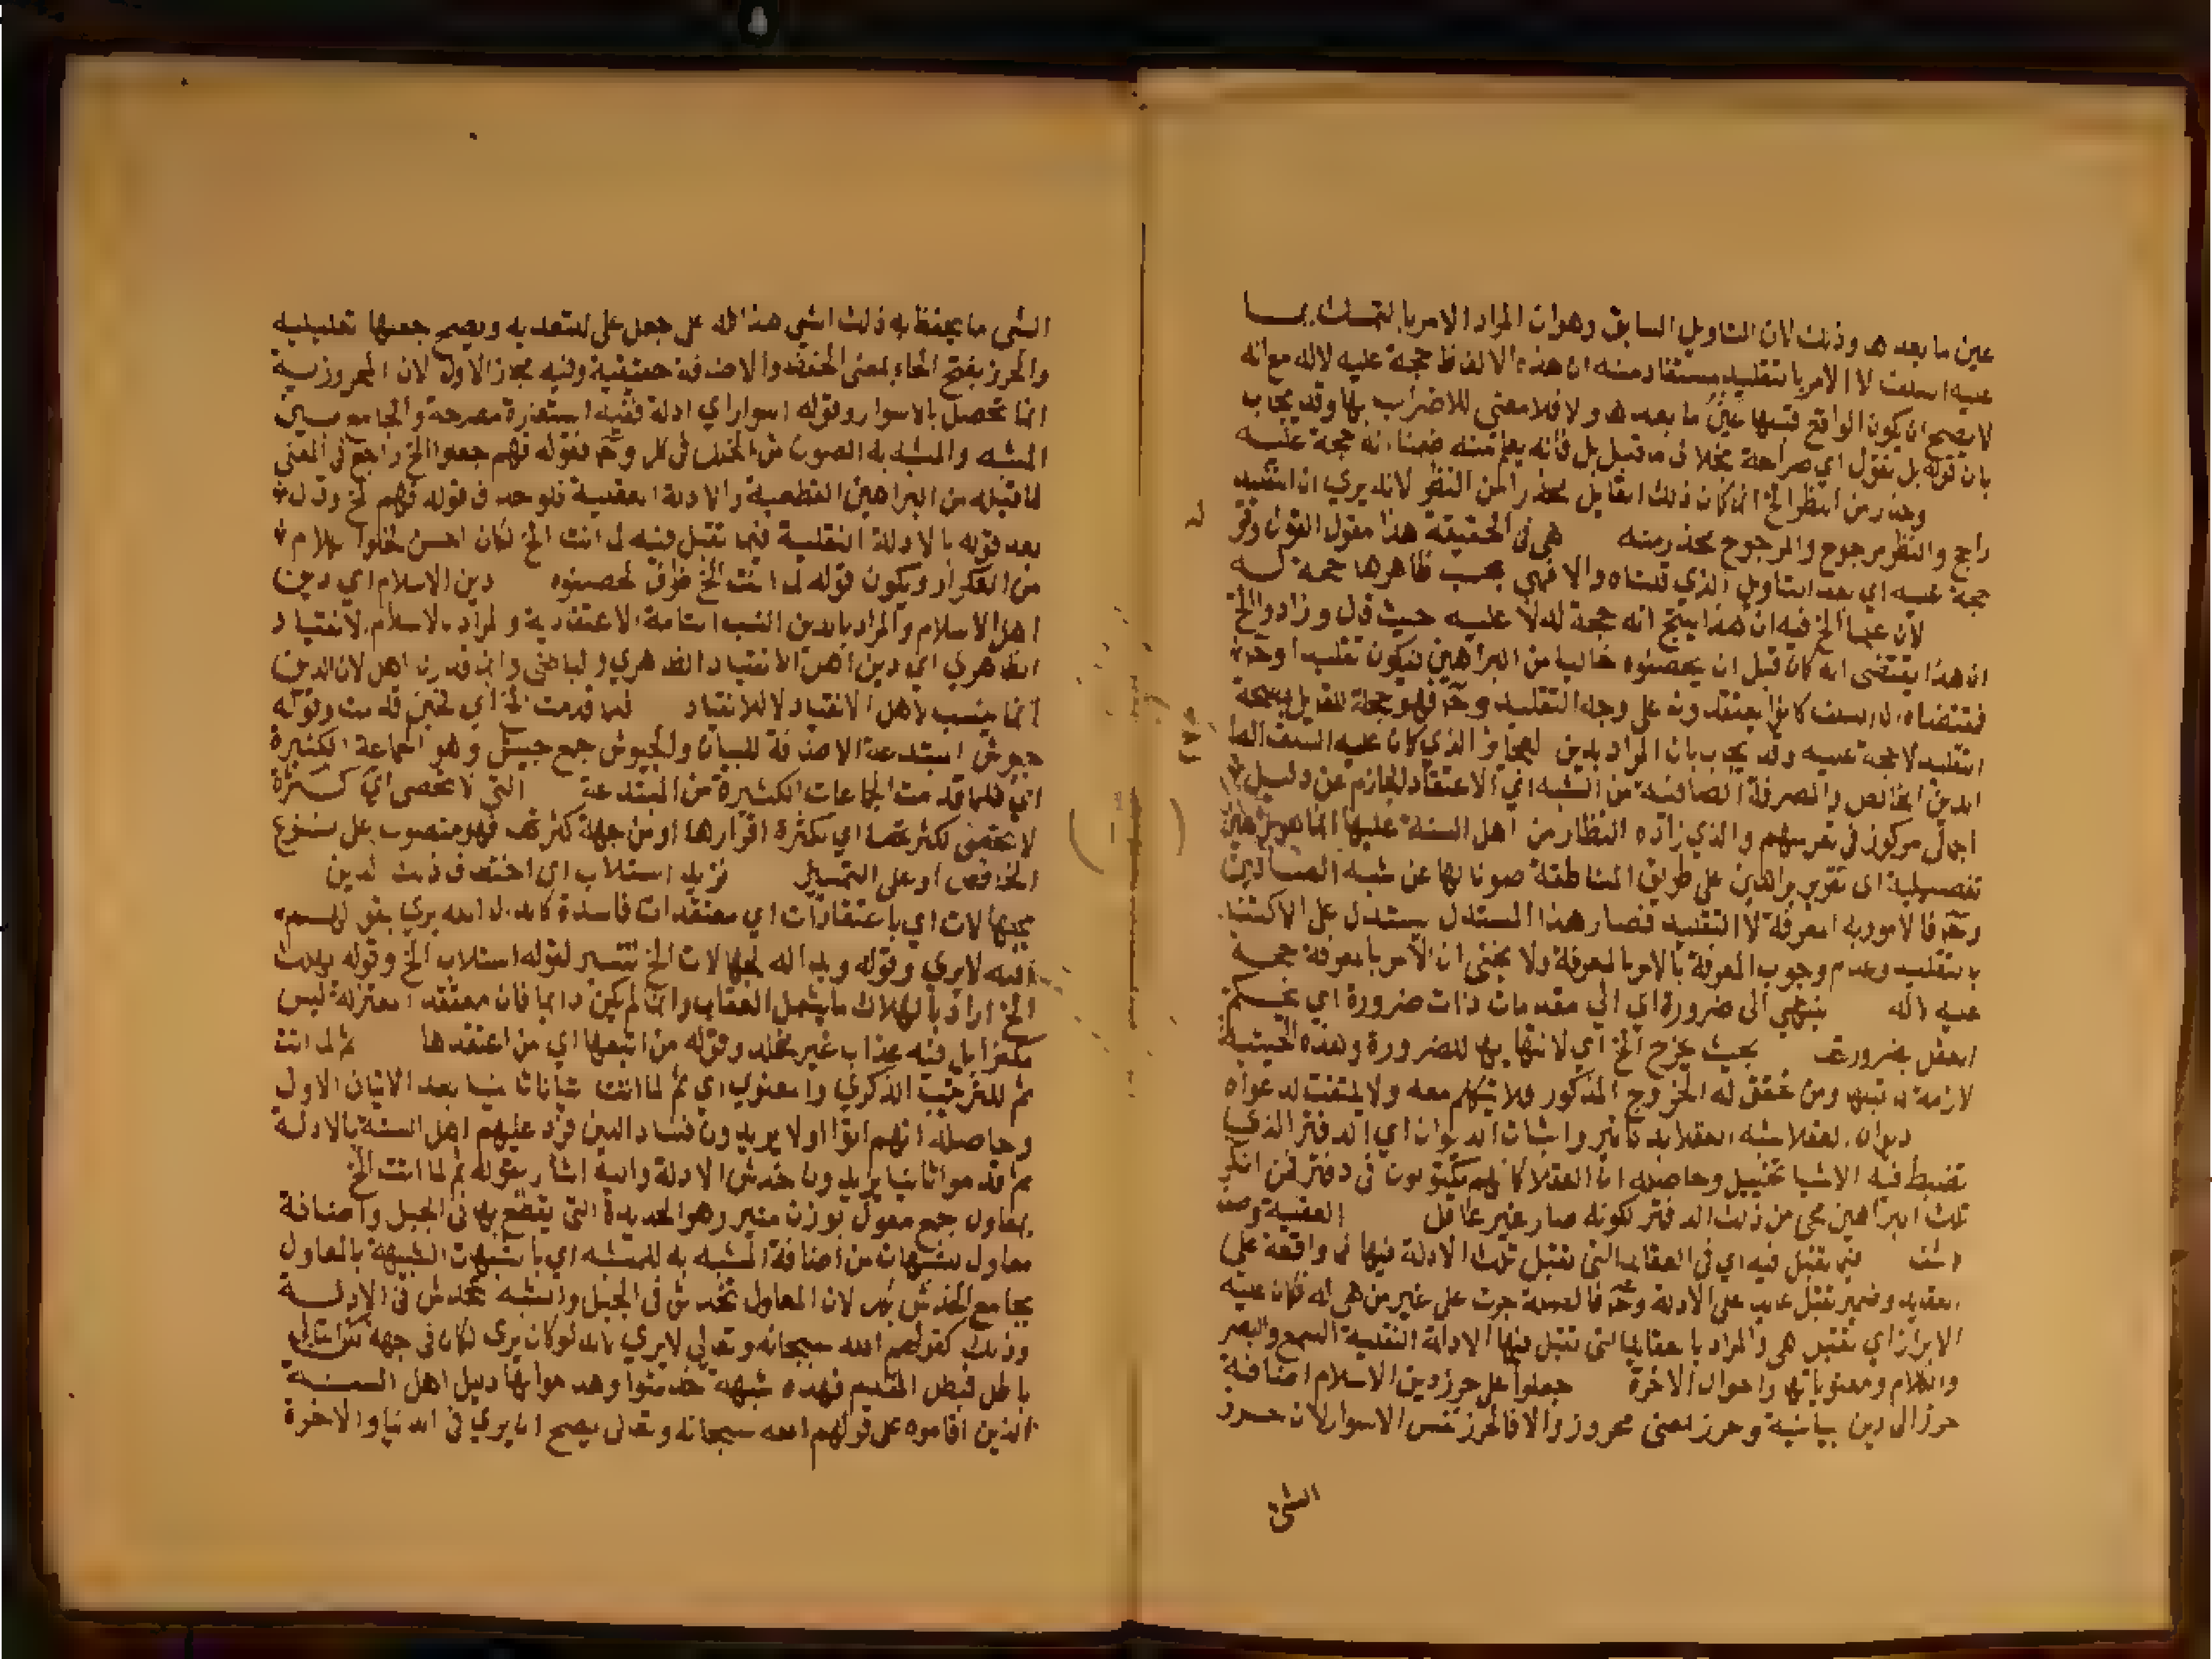 عين ما بعدها وذلك لان التاويل السابق وهو ان المراد الامر بالتمسك بما
عليه السلف لا الامر بالتقليد مستفاد منه ان هذه الالفاظ حجة عليه لا له مع انه
لا يصح ان يكون الواقع قبلها عين ما بعدها ولا فلا معنى للاضراب بها وقد يجاب
بان قوله بل نقول اي صراحة بخلاف ما قبل بل فانه يعلم منه ضمنا انه حجة عليه
وحذر من النظر الخ انما كان ذلك القايل يحذر من النظر لانه يري ان التقليد
راجح والنظر مرجوح والمرجوح يحذر منه هي في الحقيقة هذا مقول القول وقو
حجة عليه اي بعد التاويل الذي قلناه والا فهي بحسب ظاهرها حجة له
لان علما الخ فيه ان هذا ينتج انه حجة له لا عليه حيث قال وزادوا الخ
ان هذا يقتضى انه كان قبل ان يحصنوه خاليا من البراهين فيكون تقليدا وحـ
فمقتضاه ان السلف كانوا يعتقدونه على وجه التقليد وحـ فهو حجة للقايل بصحة
التقليد لا حجة عليه وقد يجاب بان المراد بدين العجايز الذي كان عليه السلف الصا
الدين الخالص والمعرفة الصافية من الشبه اي الاعتقاد الجازم عن دليل
اجمالى مركوز في نفوسهم والذي زاده النظار من اهل السنة عليها انما هو براهين
تفصيلية اى تقرير براهين على طريق المناطقة صونا لها عن شبه الضالين
وحـ فالامور به المعرفة لا التقليد فصار هذا المستدل يستدل على الاكتفا
بالتقليد وعدم وجوب المعرفة بالامر بالمعرفة ولا يخفى ان الامر بالمعرفة حجة
عليه لا له ينتهي الى ضرورة اي الي مقدمات ذات ضرورة اي يحكم
العقل بضرورتها بحيث يخرج الخ اي لانتهايها للضرورة وهذه الحيثية
لازمة لما قبلها ومن تحقق له الخروج المذكور فلا يتكلم معه ولا يلتفت لدعواه
ديوان العقلا شبه العقلا بدفاتر واثبات الديوان اي الدفتر الذي
تضبط فيه الاشيا تخييل وحاصله ان العقلا كانهم مكتوبون في دفتر فمن انكر
تلك البراهين محى من ذلك الدفتر لكونه صار غير عاقل العقلية وصف
كاشف فيما يقبل فيه اي في العقايد التي تقبل تلك الادلة فيها فما واقعة على
العقايد وضمير تقبل عايد على الادلة وحـ فالصلة جرت على غير من هي له فكان عليه
الابراز اي تقبل هي والمراد بالعقايد التى تقبل فيها الادلة النقلية السمع والبصر
والكلام ومعنوياتها واحوال الاخرة جعلوا على حرز دين الاسلام اضافة
حرز الى دين بيانية وحرز بمعنى محروز والا فالحرز نفس الاسوار لان حرز
الشي
الشي ما يحفظ به ذلك الشي هذا كله على جعل على للتعدية ويصح جعلها تعليلية
والحرز بفتح الحاء بمعنى الحفظ والاضافة حقيقية وفيه مجاز الاول لان المحروزية
انما تحصل بالاسوار وقوله اسوارا اي ادلة ففيه استعارة مصرحة والجامع بين
المشبه والمشبه به الصون من الخلل في كل وحـ فقوله فهم جعلوا الخ راجع في المعنى
لما قبله من البراهين القطعية والادلة العقلية فلو حذف قوله فهم الخ وقال
بعد قوله بالادلة النقلية فيما تقبل فيه لما اتت الخ لكان احسن لخلوا الكلام
من التكرار ويكون قوله لما اتت الخ ظرف لحصنوه دين الاسلام اي دين
اهل الاسلام والمراد بالدين النسب التامة الاعتقادية والمراد بالاسلام الانقياد
الظاهري اي دين اهل الانقياد الظاهري والباطني وانما قدرنا اهل لان الدين
انما ينسب لاهل الانقياد لا للانقياد لما قدمت الخ اي لحين قدمت وقوله
جيوش المبتدعة الاضافة للبيان والجيوش جمع جيش وهو الجماعة الكثيرة
اي فلما قدمت الجماعات الكثيرة من المبتدعة التي لا تحصى اي كثرة
لا تحصى لكثرتها اي لكثرة افرارها او من جهة كثرتها فهو منصوب على نزع
الخافض او على التمييز تريد استلاب اي اختطاف ذلك الدين
بجهالات اي باعتقادات اي معتقدات فاسدة كابدال الله يري بقولهم
الله لا يري وقوله ويبداله بجهالات الخ تفسير لقوله استلاب الخ وقوله يهلك
الخ اراد بالهلاك ما يشمل العقاب وان لم يكن دايما فان معتقد المعتزلة ليس
مكفرا بل فيه عذاب غير مخلد وقوله من اتبعها اي من اعتقدها ثم لما اتت
ثم للترتيب الذكري والمعنوي اي ثم لما اتت ثانا ثانيا بعد الاتيان الاول
وحاصله انهم اتوا اولا يريدون فساد الدين فرد عليهم اهل السنة بالادلة
ثم قدموا ثانيا يريدون خدش الادلة واليه اشار بقوله ثم لما اتت الخ
بمعاول جمع معول بوزن منبر وهو الحديدة التى يقطع بها في الجبل واضافة
معاول للشبهات من اضافة المشبه به للمشبه اي بالشبهات الشبيهة بالمعاول
بجامع الخدش بكل لان المعاول تخدش في الجبل والشبه تخدش في الادلة
وذلك كقولهم الله سبحانه وتعالي لا يري لانه لو كان يرى لكان في جهة لكن التالي
باطل فبطل المقدم فهذه شبهة خدشوا وهدموا بها دليل اهل السنة
الذين اقاموه على قولهم الله سبحانه وتعالى يصح ان يرى في الدنيا والاخرة